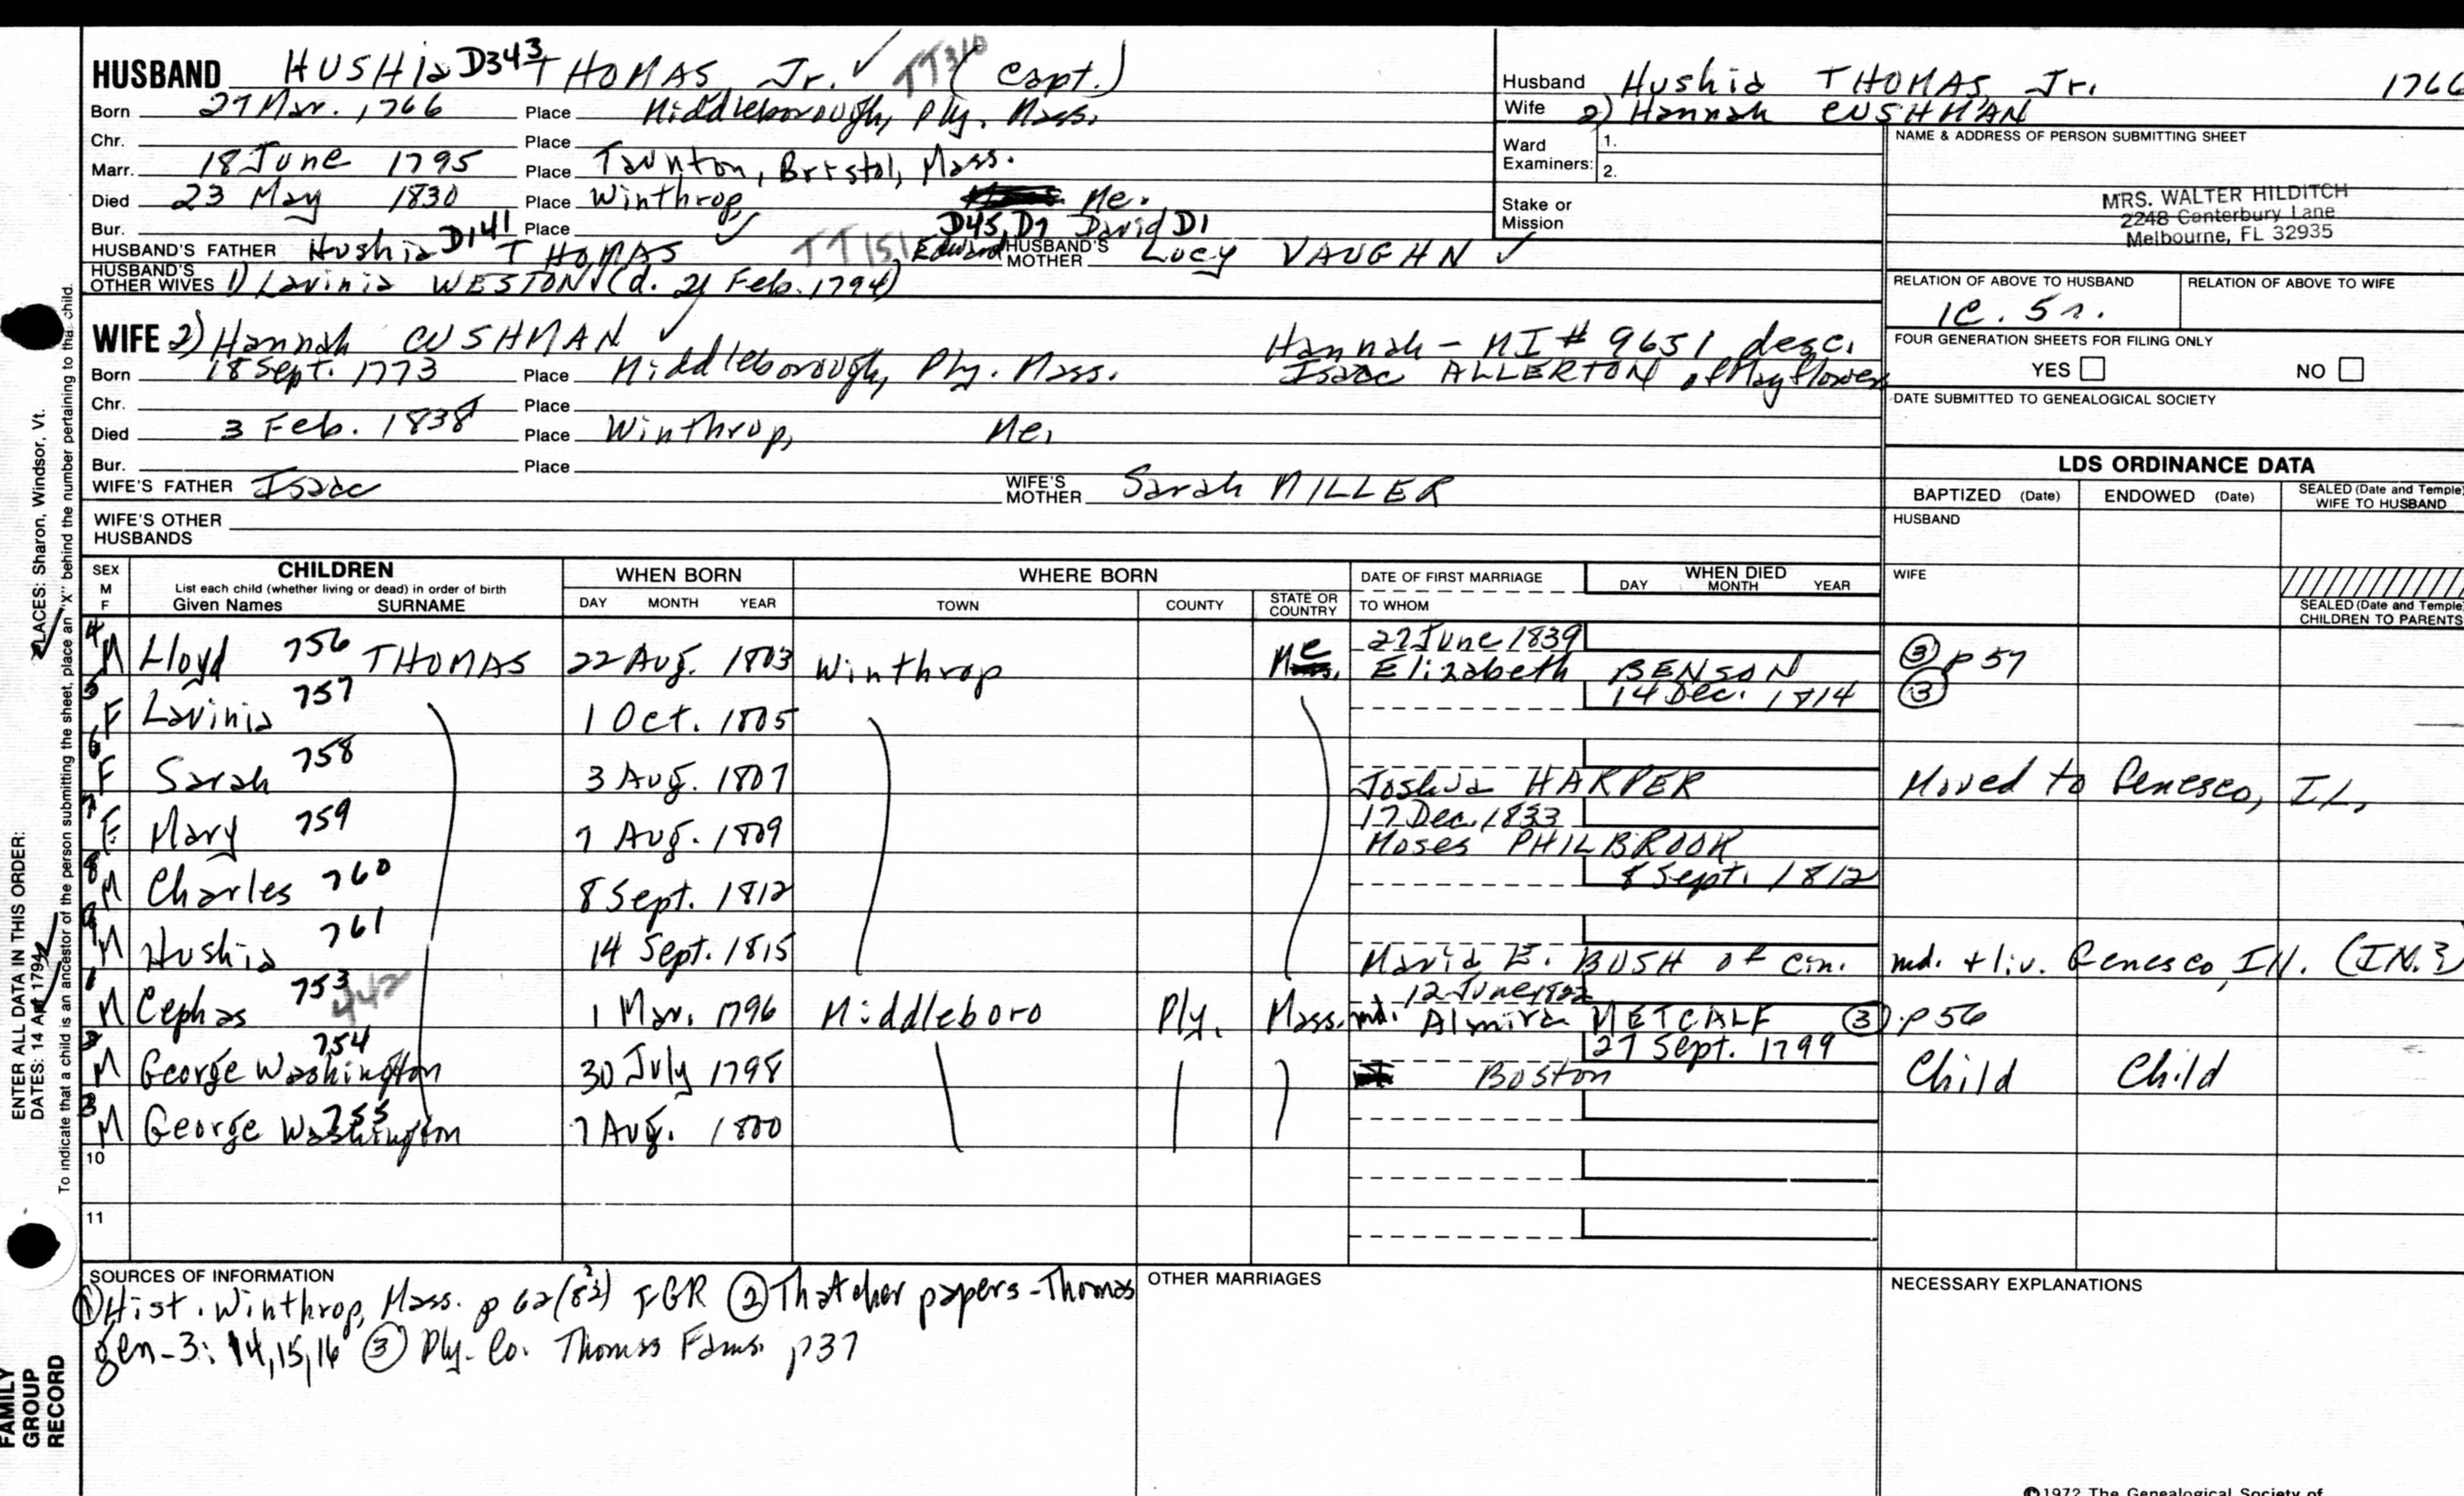 HUSBAND HUSHia D343 THOMAS Jr. ✓ TT310 (Capt.)
Born 27 Mar. 1766 Place Middleborough, Ply. Mass.
Chr. Place
Marr. 18 June 1795 Place Taunton, Bristol, Mass.
Died 23 May 1830 Place Winthrop, Me.
Bur. Place D45, D7 David D1
HUSBAND'S FATHER Hushia D141 THOMAS ✓ TT151, Edward HUSBAND'S MOTHER Lucy VAUGHN ✓
HUSBAND'S OTHER WIVES 1) Lavinia WESTON (d. 21 Feb. 1794)
WIFE 2) Hannah CUSHMAN ✓ Hannah - MI # 9651 desc.
Born 18 Sept. 1773 Place Middleborough, Ply. Mass. Isaac ALLERTON of Mayflower
Chr. Place
Died 3 Feb. 1838 Place Winthrop, Me.
Bur. Place
WIFE'S FATHER Isaac WIFE'S MOTHER Sarah MILLER
WIFE'S OTHER HUSBANDS
Husband Hushia THOMAS, Jr. 1766
Wife 2) Hannah CUSHMAN
Ward Examiners: 1.
2.
Stake or Mission
NAME & ADDRESS OF PERSON SUBMITTING SHEET
MRS. WALTER HILDITCH
2248 Canterbury Lane
Melbourne, FL 32935
RELATION OF ABOVE TO HUSBAND RELATION OF ABOVE TO WIFE
1c. 5r.
FOUR GENERATION SHEETS FOR FILING ONLY
YES NO
DATE SUBMITTED TO GENEALOGICAL SOCIETY
LDS ORDINANCE DATA
BAPTIZED (Date) ENDOWED (Date) SEALED (Date and Temple) WIFE TO HUSBAND
HUSBAND
WIFE
SEALED (Date and Temple) CHILDREN TO PARENTS
SEX M F CHILDREN WHEN BORN WHERE BORN DATE OF FIRST MARRIAGE WHEN DIED
List each child (whether living or dead) in order of birth
Given Names SURNAME DAY MONTH YEAR TOWN COUNTY STATE OR COUNTRY TO WHOM DAY MONTH YEAR
27 June 1839
4 M Lloyd 756 THOMAS 22 Aug. 1803 Winthrop Me Elizabeth BENSON ③ p 57
5 F Lavinia 757 1 Oct. 1805 14 Dec. 1814 ③
6 F Sarah 758 3 Aug. 1807 Joshua HARPER Moved to Genesco, IL,
17 Dec. 1833
7 F Mary 759 7 Aug. 1809 Moses PHILBROOK
8 M Charles 760 8 Sept. 1812 8 Sept. 1812
9 M Hushia 761 14 Sept. 1815 Maria E. BUSH of Cin. md. + liv. Genesco, IN. (IN.?)
12 June 1822
1 M Cephas 753 442 1 Mar. 1796 Middleboro Ply. Mass. md. Almira METCALF ③ p 56
27 Sept. 1799
M George Washington 754 30 July 1798 Boston Child Child
3 M George Washington 755 7 Aug. 1800
10
11
SOURCES OF INFORMATION
① Hist. Winthrop, Mass. p 62 FGR ② Thatcher papers - Thomas
gen - 3: 14, 15, 16 ③ Ply. Co. Thomas Fams. p37
OTHER MARRIAGES
NECESSARY EXPLANATIONS
©1972 The Genealogical Society of
PLACES: Sharon, Windsor, Vt.
ENTER ALL DATA IN THIS ORDER:
DATES: 14 Apr 1794
To indicate that a child is an ancestor of the person submitting the sheet, place an "X" behind the number pertaining to that child.
FAMILY
GROUP
RECORD